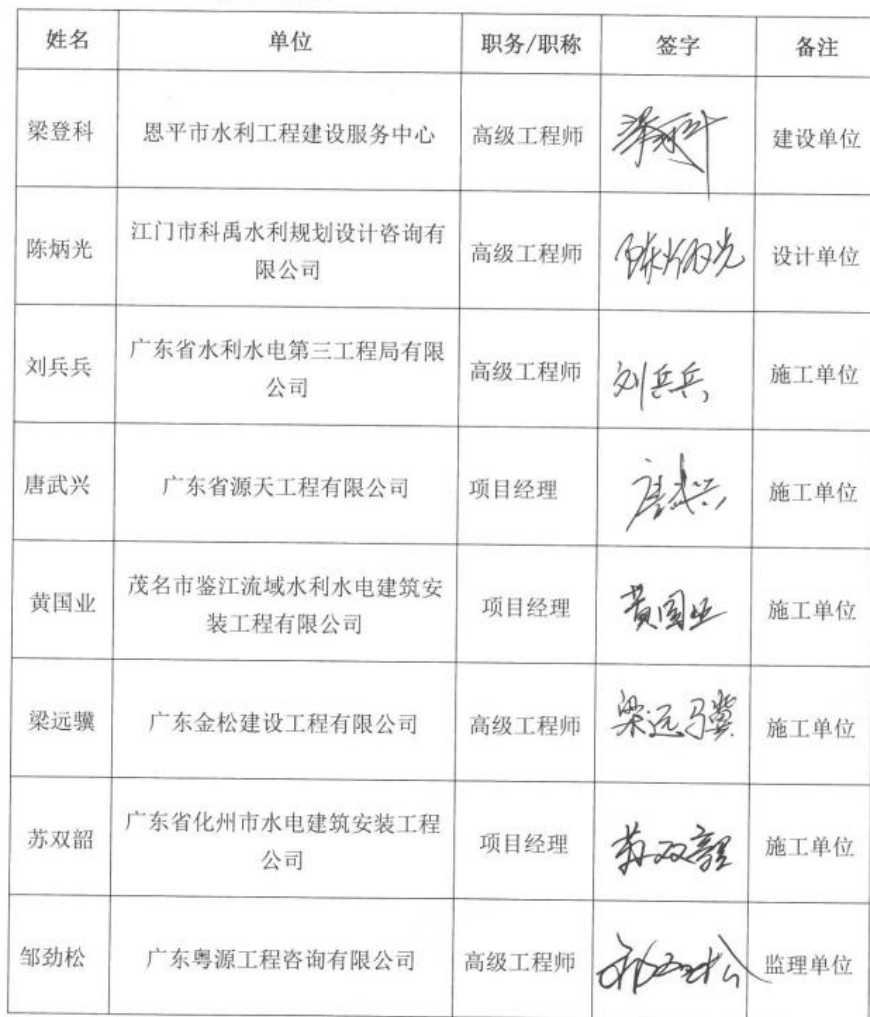 姓名 单位 职务/职称 签字 备注
梁登科 恩平市水利工程建设服务中心 高级工程师 梁登科 建设单位
陈炳光 江门市科禹水利规划设计咨询有
限公司 高级工程师 陈炳光 设计单位
刘兵兵 广东省水利水电第三工程局有限
公司 高级工程师 刘兵兵 施工单位
唐武兴 广东省源天工程有限公司 项目经理 唐武兴 施工单位
黄国业 茂名市鉴江流域水利水电建筑安
装工程有限公司 项目经理 黄国业 施工单位
梁远骥 广东金松建设工程有限公司 高级工程师 梁远骥 施工单位
苏双韶 广东省化州市水电建筑安装工程
公司 项目经理 苏双韶 施工单位
邹劲松 广东粤源工程咨询有限公司 高级工程师 邹劲松 监理单位